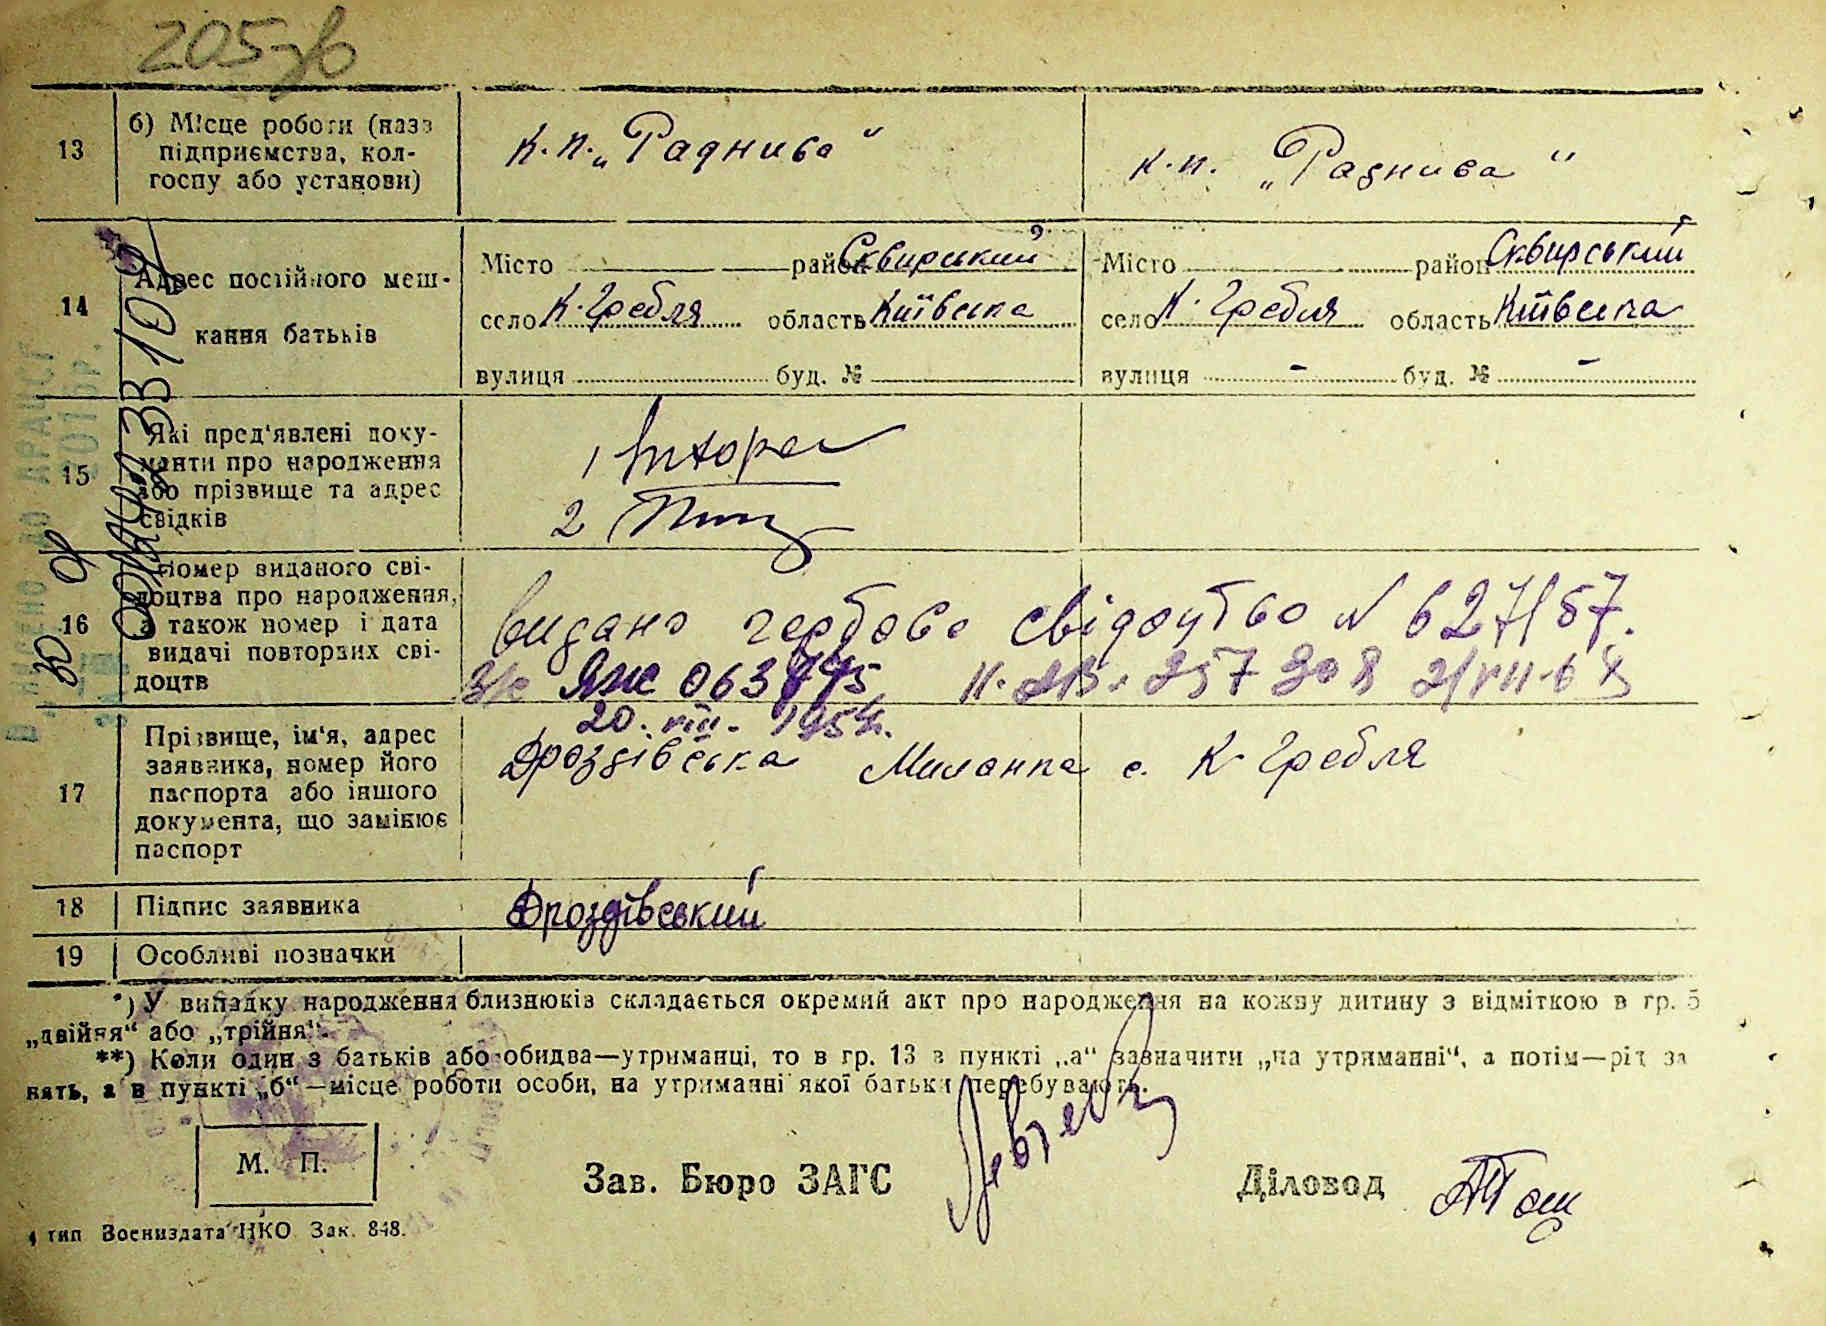 205 зв
13 б) Місце роботи (назв підприємства, кол- госпу або установи)
к.п. „Раднива“
к.п. „Раднива“
14 Адрес постійного меш- кання батьків
Місто район Сквирский
село К-Гребля область Київська
вулиця буд. №
Місто район Сквирський
село К-Гребля область Київська
вулиця - буд. № -
15 Які пред'явлені доку- менти про народження або прізвище та адрес свідків
1
2
16 Номер виданого сві- доцтва про народження, а також номер і дата видачі повторних сві- доцтв
видано гербове свідоцтво N 627/57.
ЯЖ 063775
20. VIII. 1954.
17 Прізвище, ім'я, адрес заявника, номер його паспорта або іншого документа, що замінює паспорт
Дроздівська Миланка с. К-Гребля
18 Підпис заявника
Дроздівський
19 Особливі позначки
*) У випадку народження близнюків складається окремий акт про народження на кожну дитину з відміткою в гр. 5
„двійня“ або „трійня“.
**) Коли один з батьків або обидва—утриманці, то в гр. 13 в пункті „а“ зазначити „на утриманні“, а потім—рід за
нять, а в пункті „б“—місце роботи особи, на утриманні якої батьки перебувають.
М. П.
Зав. Бюро ЗАГС
Діловод
4 тип Воениздата НКО Зак. 848.